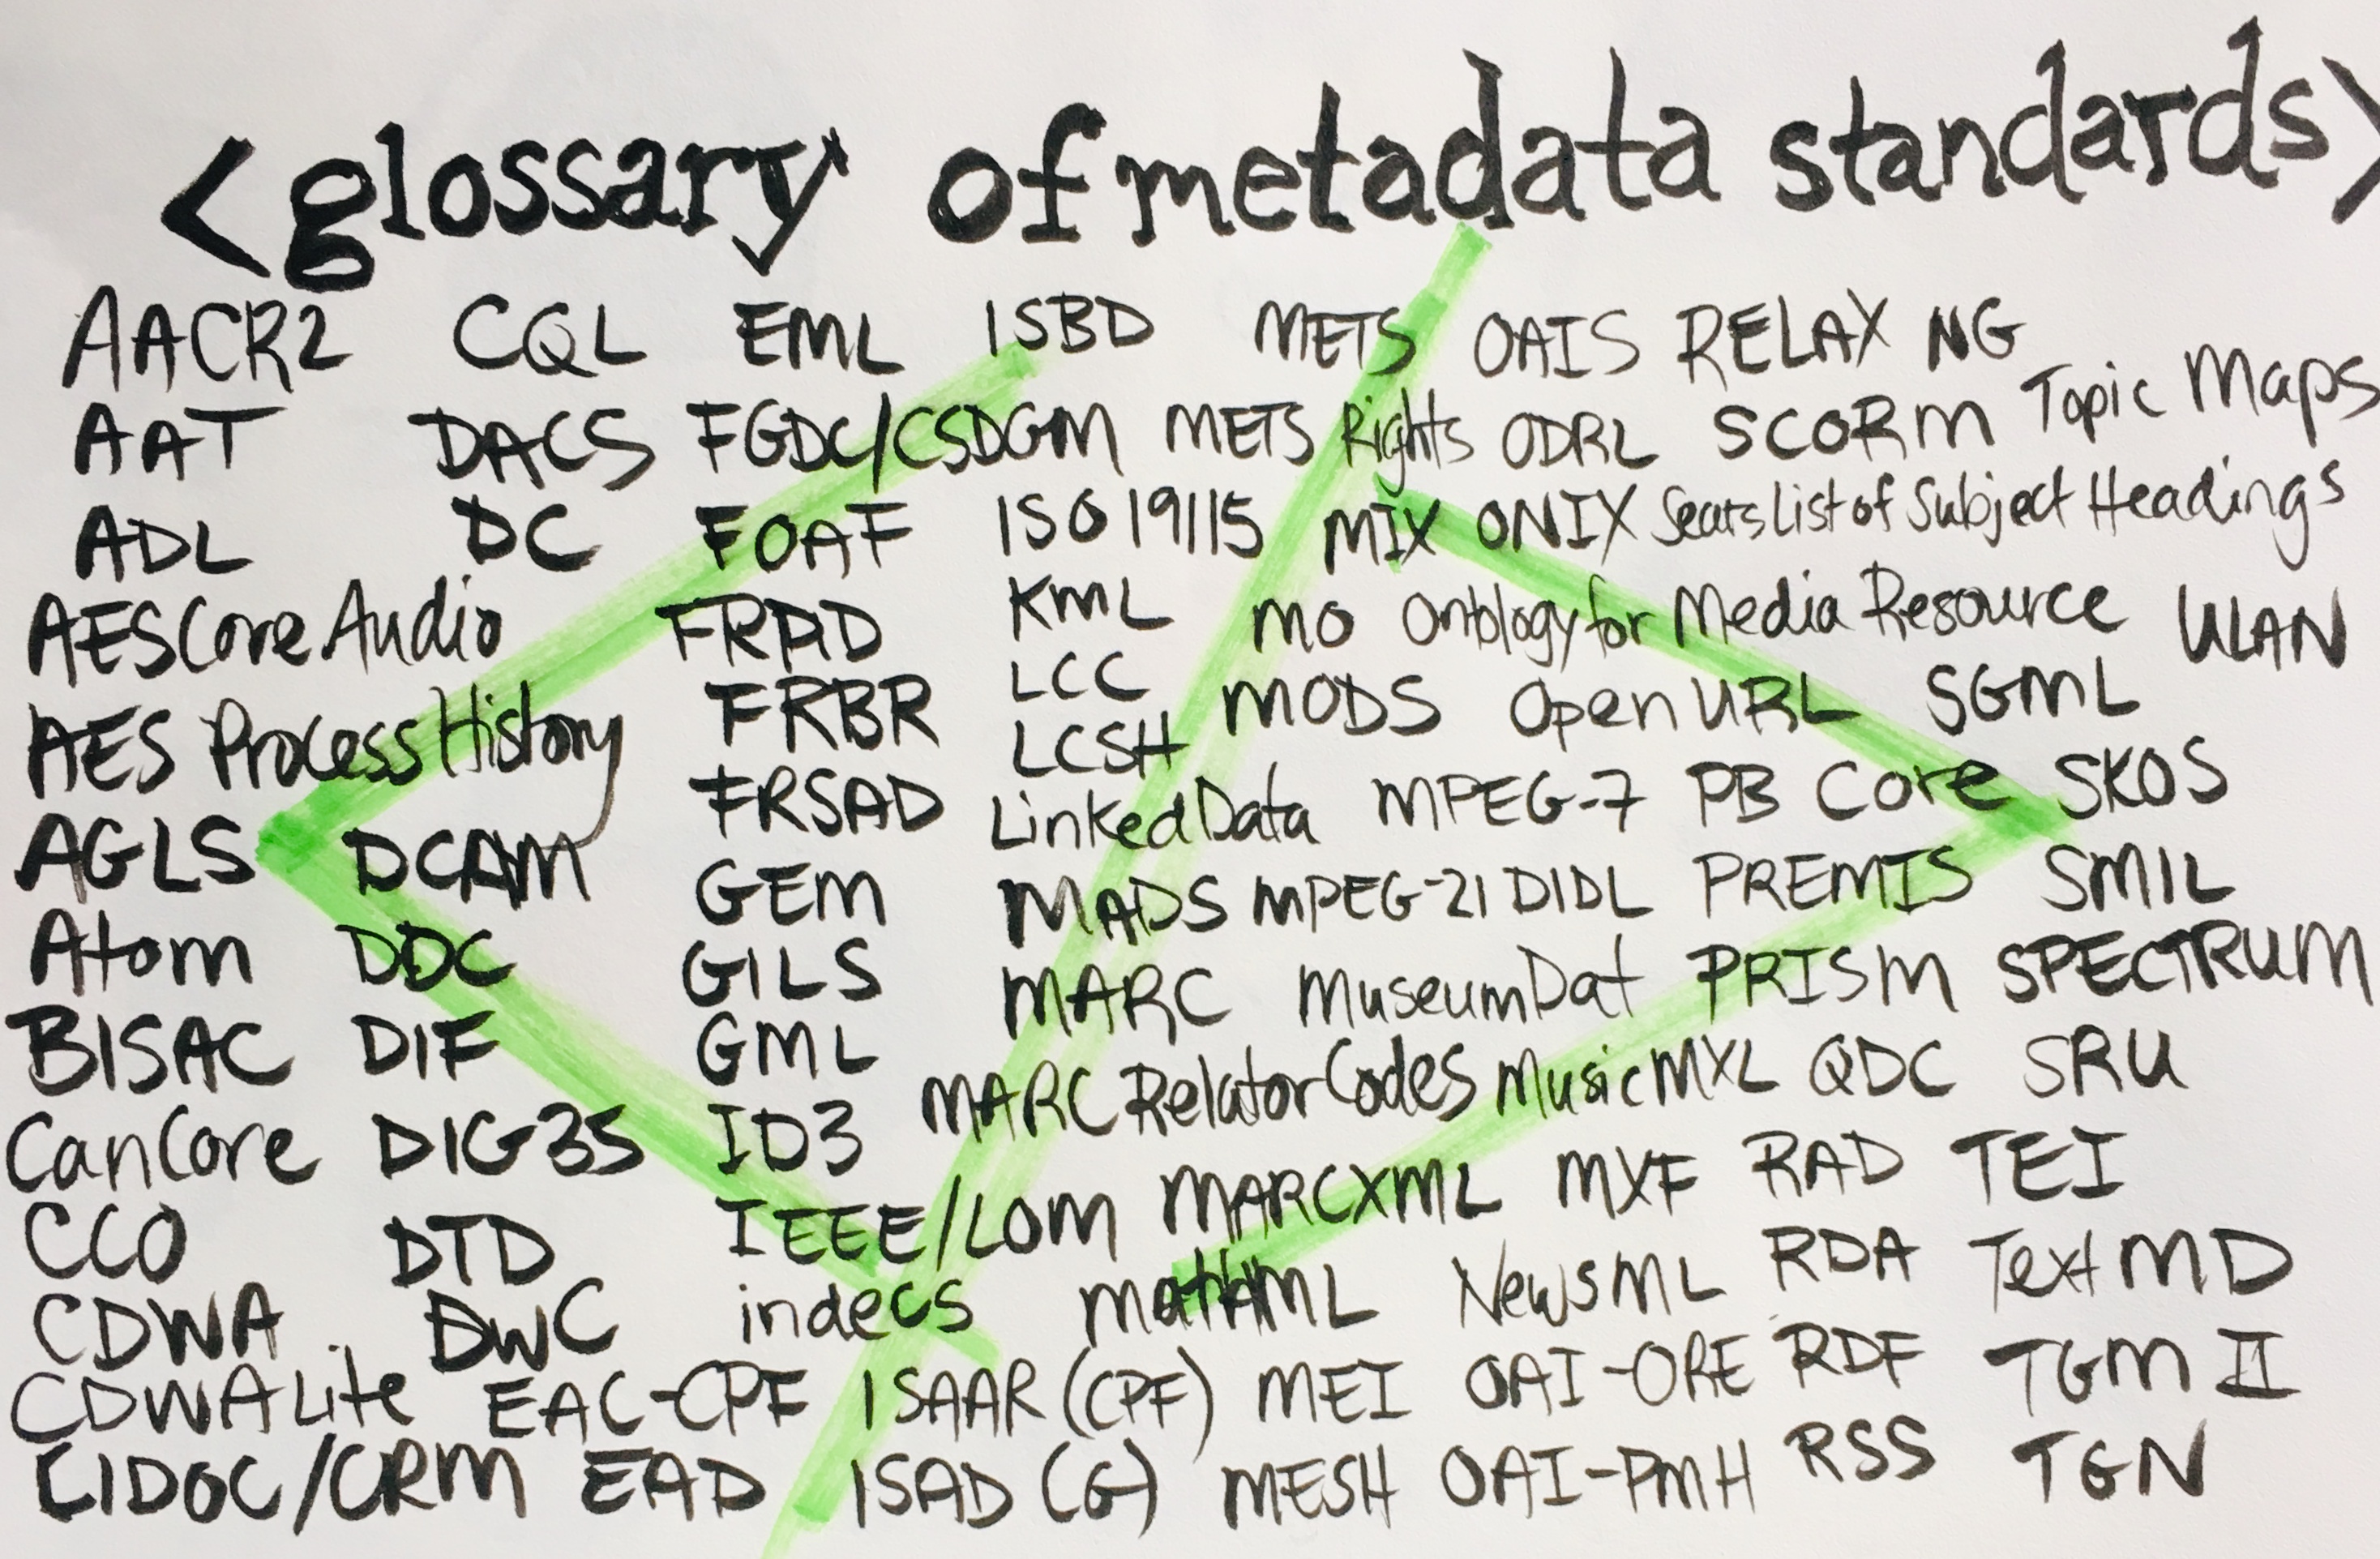 <glossary of metadata standards>
AACR2 CQL EML ISBD METS OAIS RELAX NG
AAT DACS FGDC/CSDGM METS Rights ODRL SCORM Topic Maps
ADL DC FOAF ISO 19115 MIX ONIX Sears List of Subject Headings
AES Core Audio FRAD KML MO Ontology for Media Resource ULAN
AES Process History FRBR LCC MODS Open URL SGML
LCSH
AGLS DCAM FRSAD Linked Data MPEG-7 PB Core SKOS
Atom DDC GEM MADS MPEG-21 DIDL PREMIS SMIL
BISAC DIF GILS MARC MuseumDat PRISM SPECTRUM
GML MARC Relator Codes Music MXL QDC SRU
CanCore DIG35 ID3 MARCXML MXF RAD TEI
CCO DTD IEEE/LOM MathML NewsML RDA Text MD
CDWA DwC indecs
CDWA Lite EAC-CPF ISAAR (CPF) MEI OAI-ORE RDF TGM II
CIDOC/CRM EAD ISAD (G) MESH OAI-PMH RSS TGN